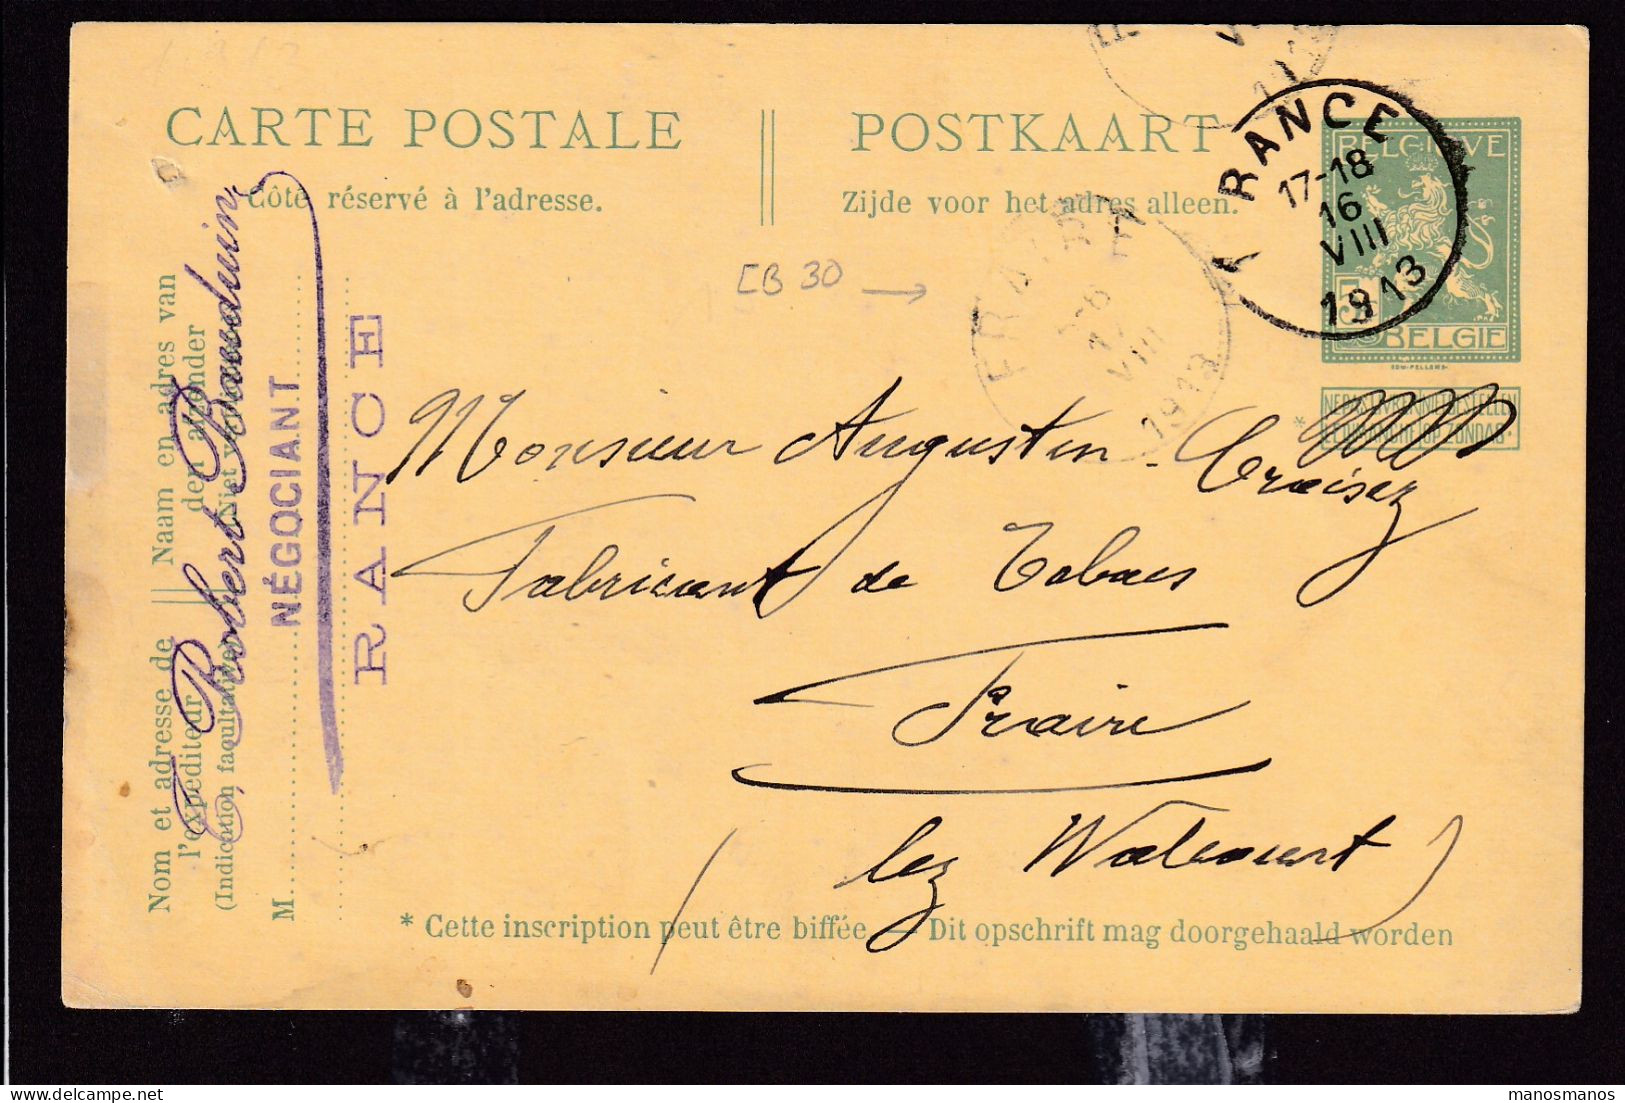 CARTE POSTALE
POSTKAART
Côté réservé à l'adresse.
Zijde voor het adres alleen.
BELGIQUE
BELGIE
RANCE
17-18
16
VIII
1913
FRAIRE
VIII
1913
CB 30 →
Nom et adresse de l'expéditeur
(Indication facultative)
Naam en adres van
den afzender
M
Robert Bauduin
NÉGOCIANT
RANCE
Monsieur Augustin Croisez
Fabricant de Tabacs
Fraire
(lez Walcourt)
* Cette inscription peut être biffée — Dit opschrift mag doorgehaald worden
manosmanos